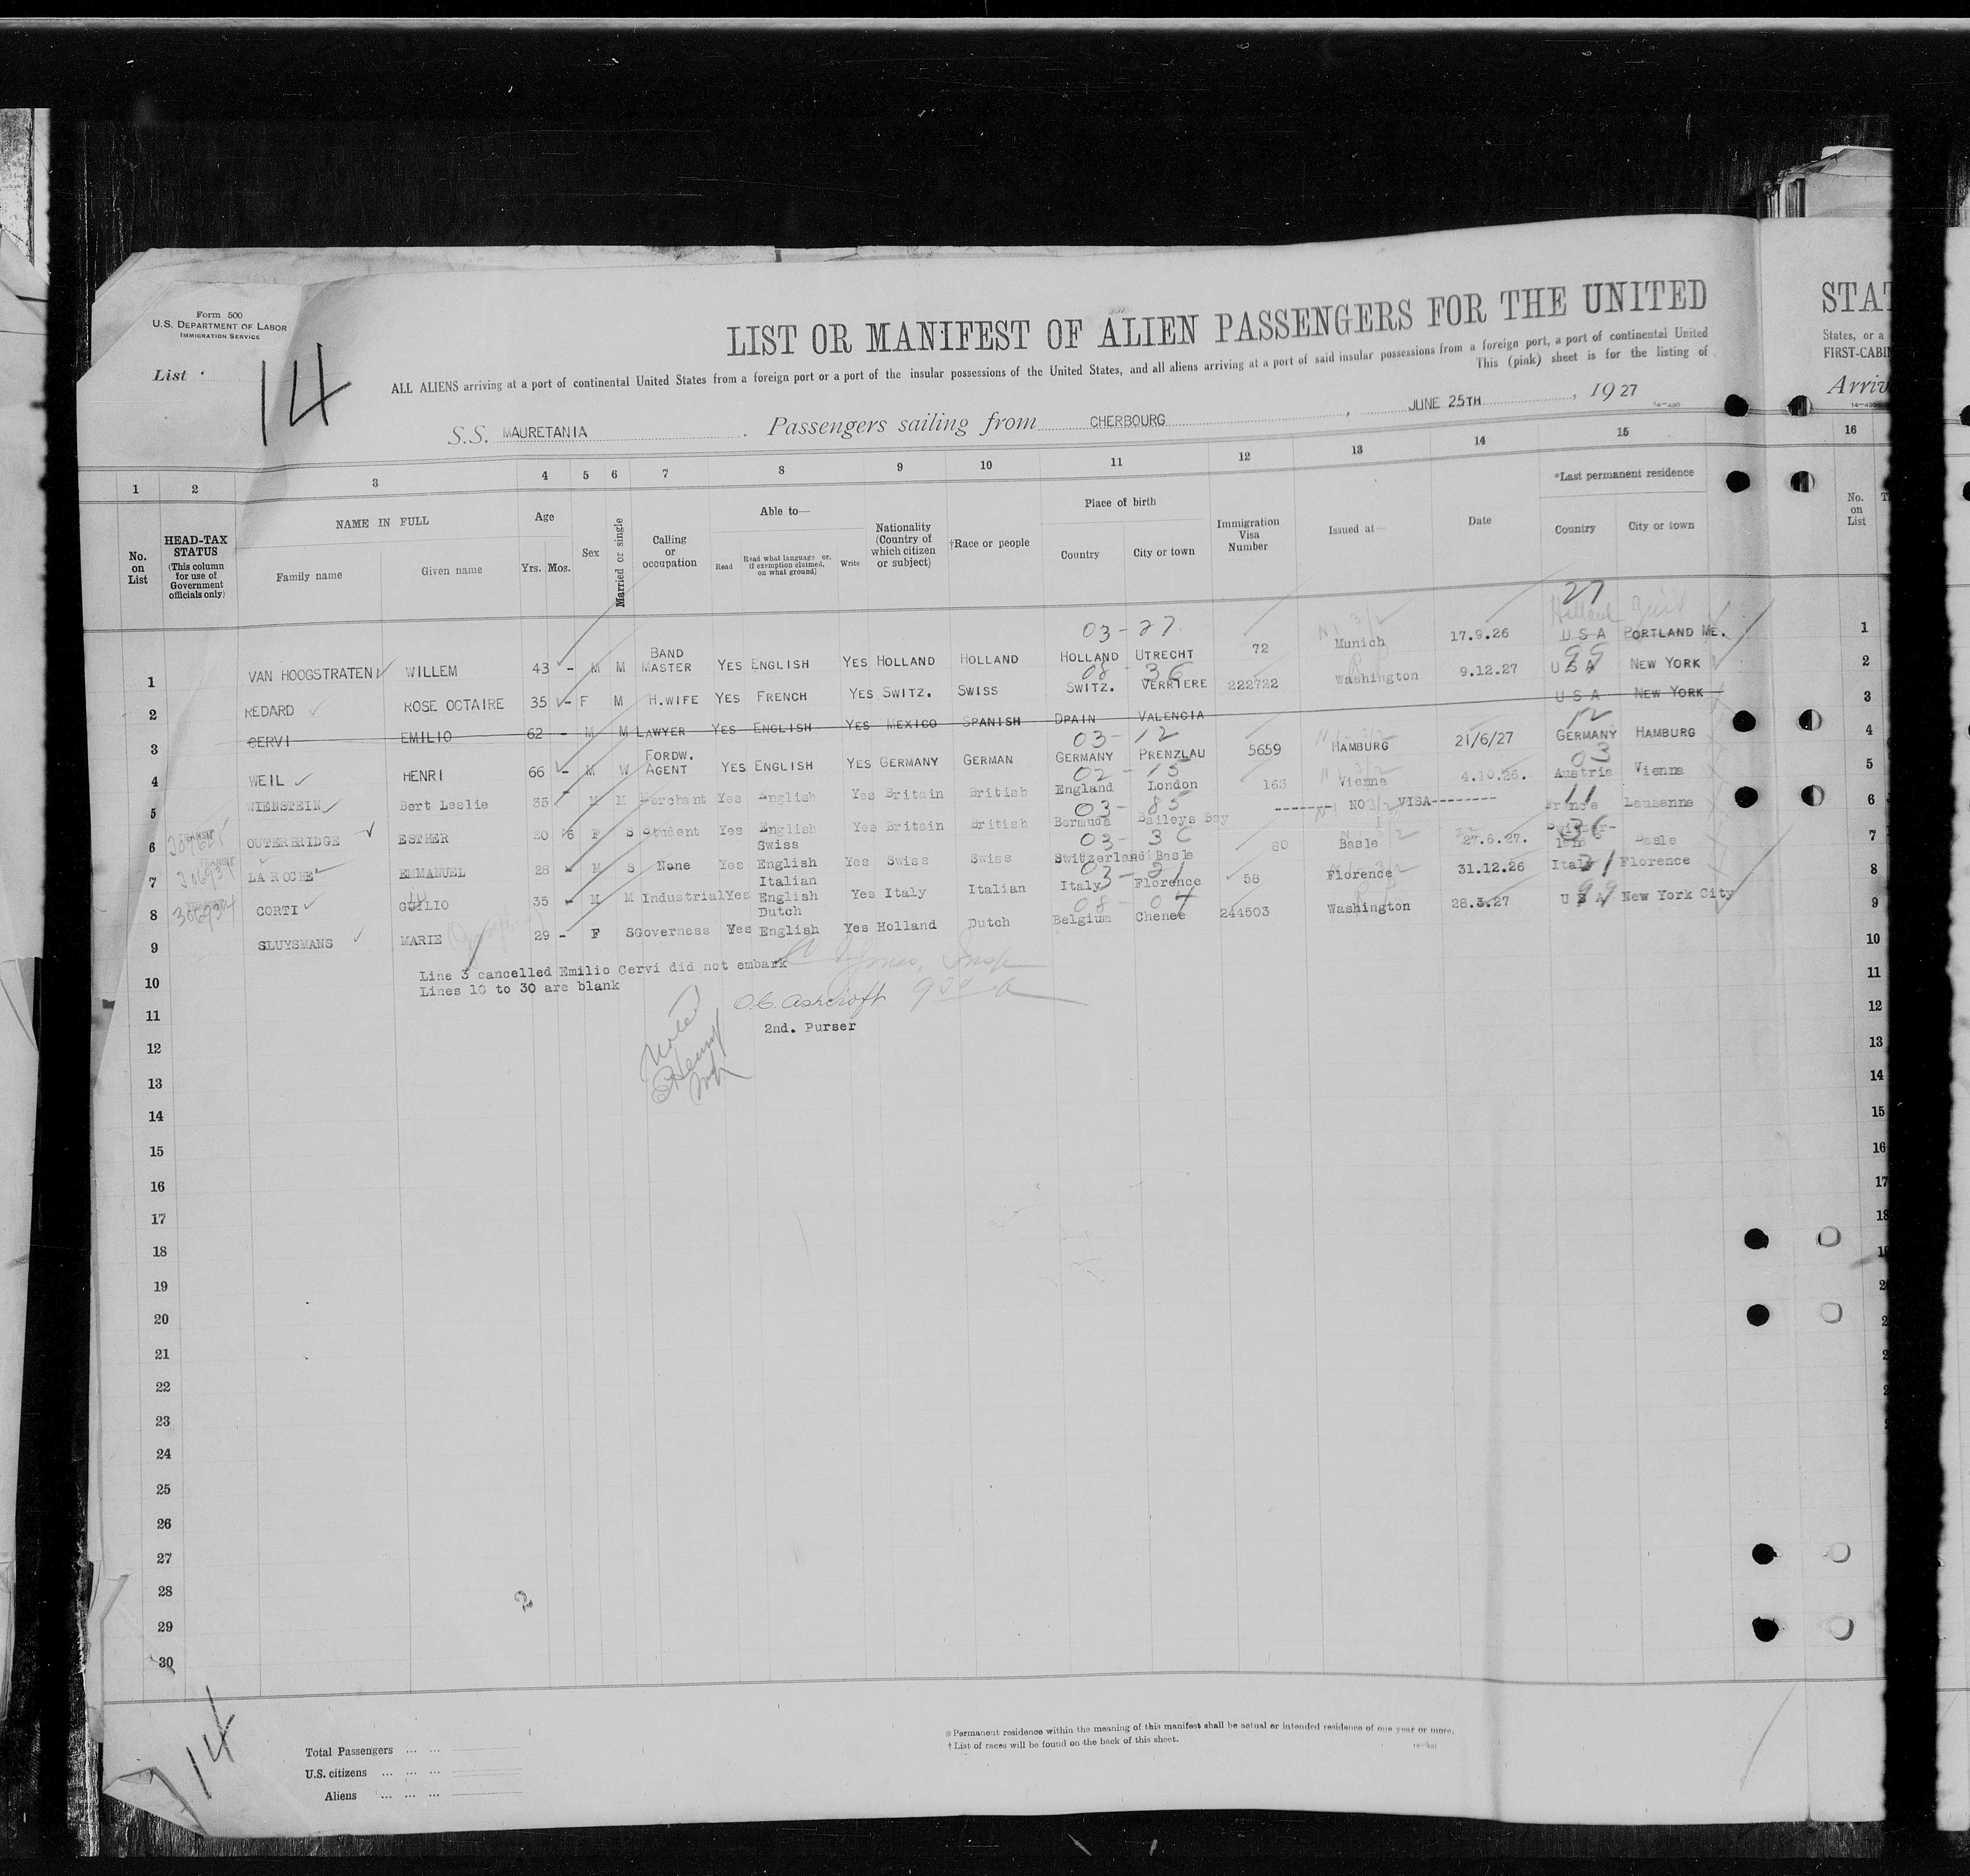 Form 500
U.S. DEPARTMENT OF LABOR
IMMIGRATION SERVICE
List
14
LIST OR MANIFEST OF ALIEN PASSENGERS FOR THE UNITED
STAT
ALL ALIENS arriving at a port of continental United States from a foreign port or a port of the insular possessions of the United States, and all aliens arriving at a port of said insular possessions from a foreign port, a port of continental United
States, or a
This (pink) sheet is for the listing of
FIRST-CABIN
S.S. MAURETANIA . Passengers sailing from CHERBOURG , JUNE 25TH , 19 27
Arriv
1 2 3 4 5 6 7 8 9 10 11 12 13 14 15 16
No. on List
HEAD-TAX STATUS (This column for use of Government officials only)
NAME IN FULL
Family name Given name
Age
Yrs. Mos.
Sex
Married or single
Calling or occupation
Able to—
Read Read what language or, if exemption claimed, on what ground) Write
Nationality (Country of which citizen or subject)
†Race or people
Place of birth
Country City or town
Immigration Visa Number
Issued at—
Date
*Last permanent residence
Country City or town
No. on List
27
Holland
03-27
1 VAN HOOGSTRATEN WILLEM 43 - M M BAND MASTER YES ENGLISH YES HOLLAND HOLLAND HOLLAND UTRECHT 72 Munich 17.9.26 U S A PORTLAND ME. 1
08-36 99
2 REDARD ROSE OCTAIRE 35 - F M H.WIFE YES FRENCH YES SWITZ. SWISS SWITZ. VERRIERE 222722 Washington 9.12.27 U S A NEW YORK 2
3 CERVI EMILIO 62 - M M LAWYER YES ENGLISH YES MEXICO SPANISH DPAIN VALENCIA U S A NEW YORK 3
03-12 12
4 WEIL HENRI 66 - M W FORDW. AGENT YES ENGLISH YES GERMANY GERMAN GERMANY PRENZLAU 5659 HAMBURG 21/6/27 GERMANY HAMBURG 4
02-15 03
5 WIENSTEIN Bert Leslie 35 - M M Merchant Yes English Yes Britain British England London 163 Vienna 4.10.26. Austria Vienna 5
03-85 11
6 TRANSIT OUTERBRIDGE ESTHER 20 6 F S Student Yes English Yes Britain British Bermuda Baileys Bay -------- NO VISA-------- France Lausanne 6
03-36 36
7 TRANSIT 306934 LA ROCHE EMMANUEL 28 - M S None Yes Swiss English Yes Swiss Swiss Switzerland Basle 80 Basle 27.6.27. Switzer-land Basle 7
03-21 21
8 306934 CORTI GUILIO 35 - M M Industrial Yes Italian English Yes Italy Italian Italy Florence 58 Florence 31.12.26 Italy Florence 8
08-04 99
9 SLUYSMANS MARIE 29 - F S Governess Yes Dutch English Yes Holland Dutch Belgium Chenee 244503 Washington 28.3.27 U S A New York City 9
Line 3 cancelled Emilio Cervi did not embark
Lines 10 to 30 are blank
O.C. Ashcroft
2nd. Purser
Noted
10 10
11 11
12 12
13 13
14 14
15 15
16 16
17 17
18 18
19
20
21
22
23
24
25
26
27
28
29
30
14
Total Passengers ... ...
U.S. citizens ... ... ...
Aliens ... ... ...
*Permanent residence within the meaning of this manifest shall be actual or intended residence of one year or more.
† List of races will be found on the back of this sheet.